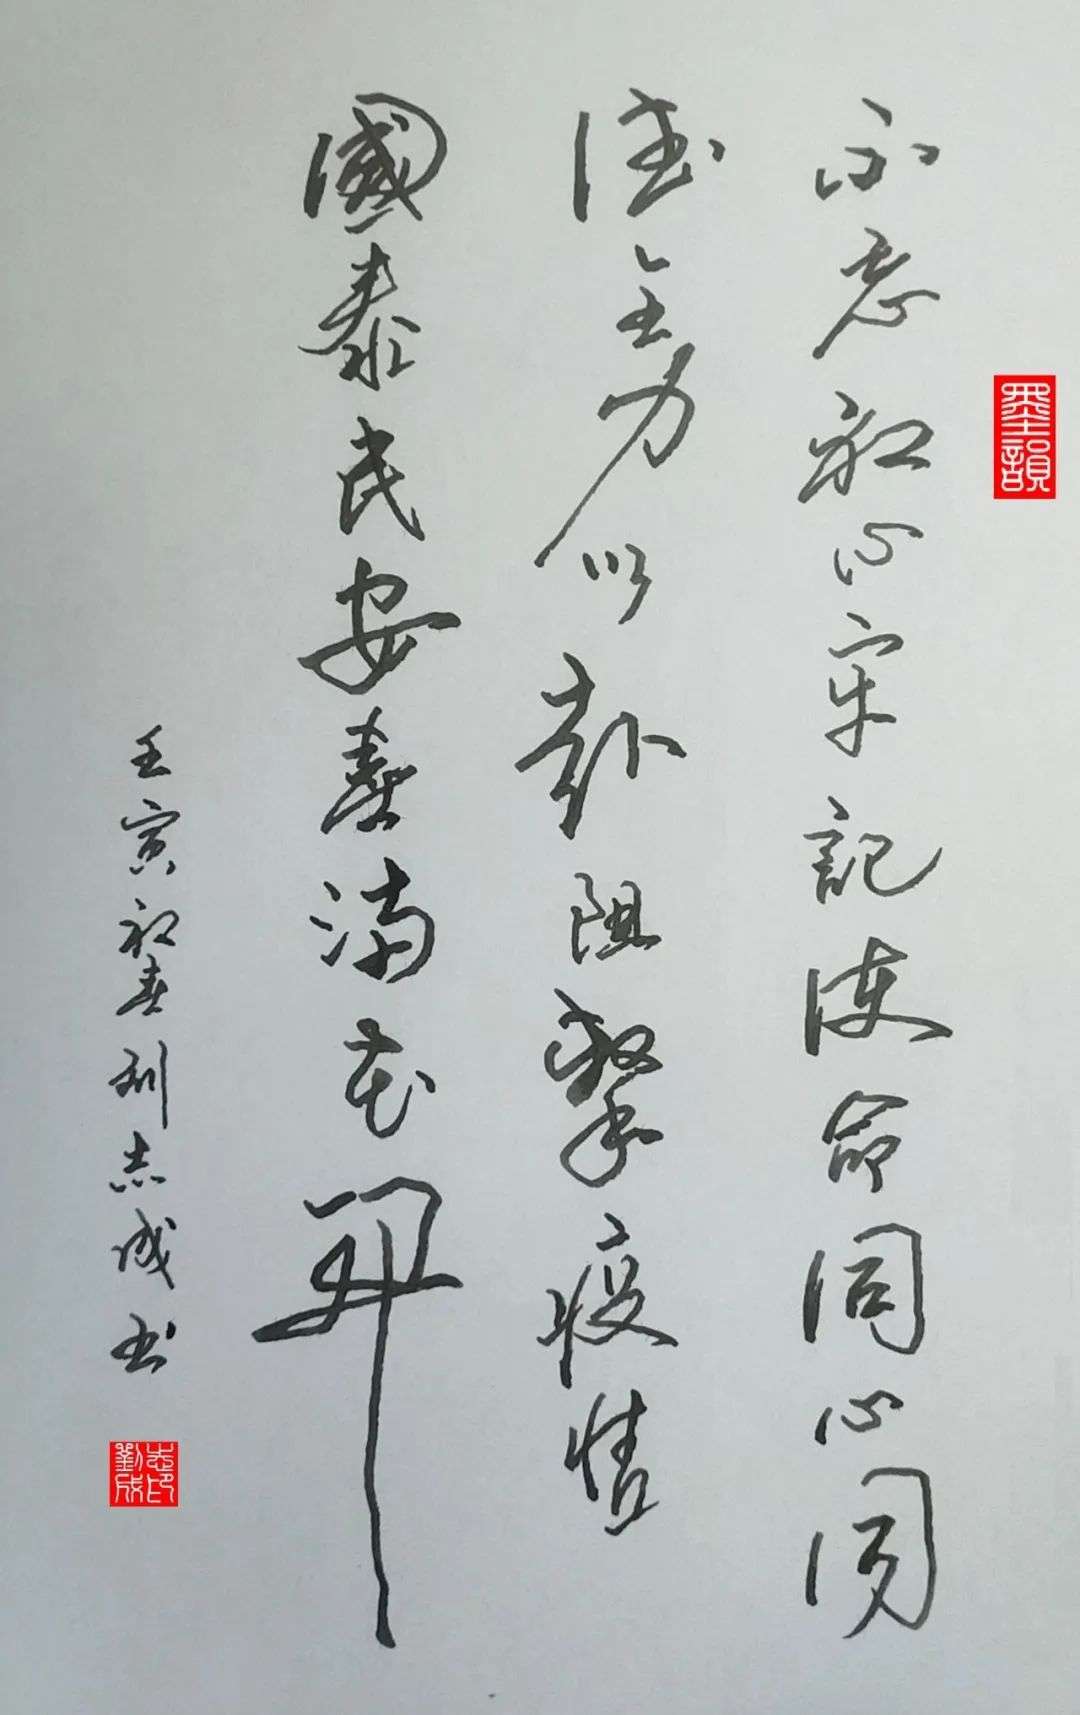 墨韻
不忘初心牢記使命同心同
德全力以赴阻擊疫情
國泰民安春滿花開
壬寅初春刘志成书
劉志成印